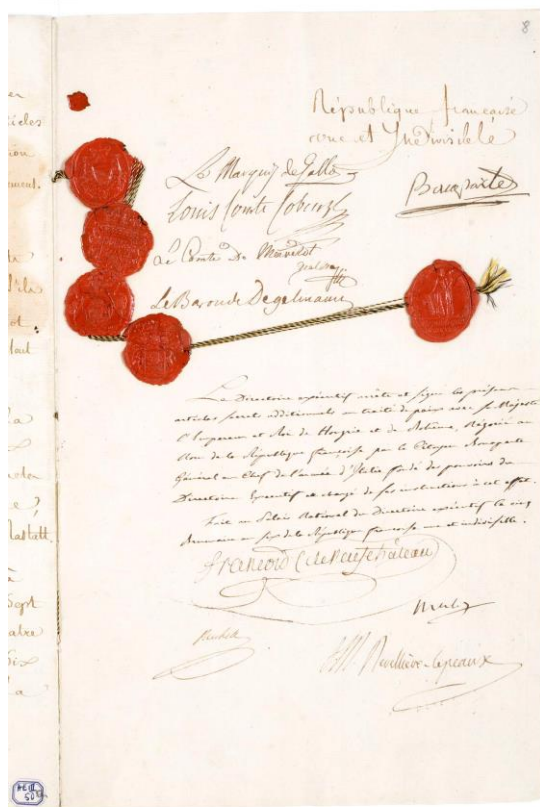 8
République française
une et Indivisible
Le Marquis de Gallo
Louis Comte Cobenzl
Bonaparte
Le Comte de Meerveldt
Le Baron de Degelmann
Le Directoire exécutif arrête et signe les présens
articles secrets additionnels au traité de paix avec sa Majesté
l'Empereur et Roi de Hongrie et de Bohême, Négocié au
Nom de la République française par le Citoyen Bonaparte
Général en Chef de l'armée d'Italie fondé de pouvoirs du
Directoire Exécutif et chargé de ses instructions à cet effet.
Fait au Palais National du Directoire exécutif le cinq
Brumaire an six de la République française une et indivisible.
François (de Neufchâteau)
Merlin
Reubell
L M Revellière-lepeaux
ement.
Rastatt.
Sept
Six
AE III
50